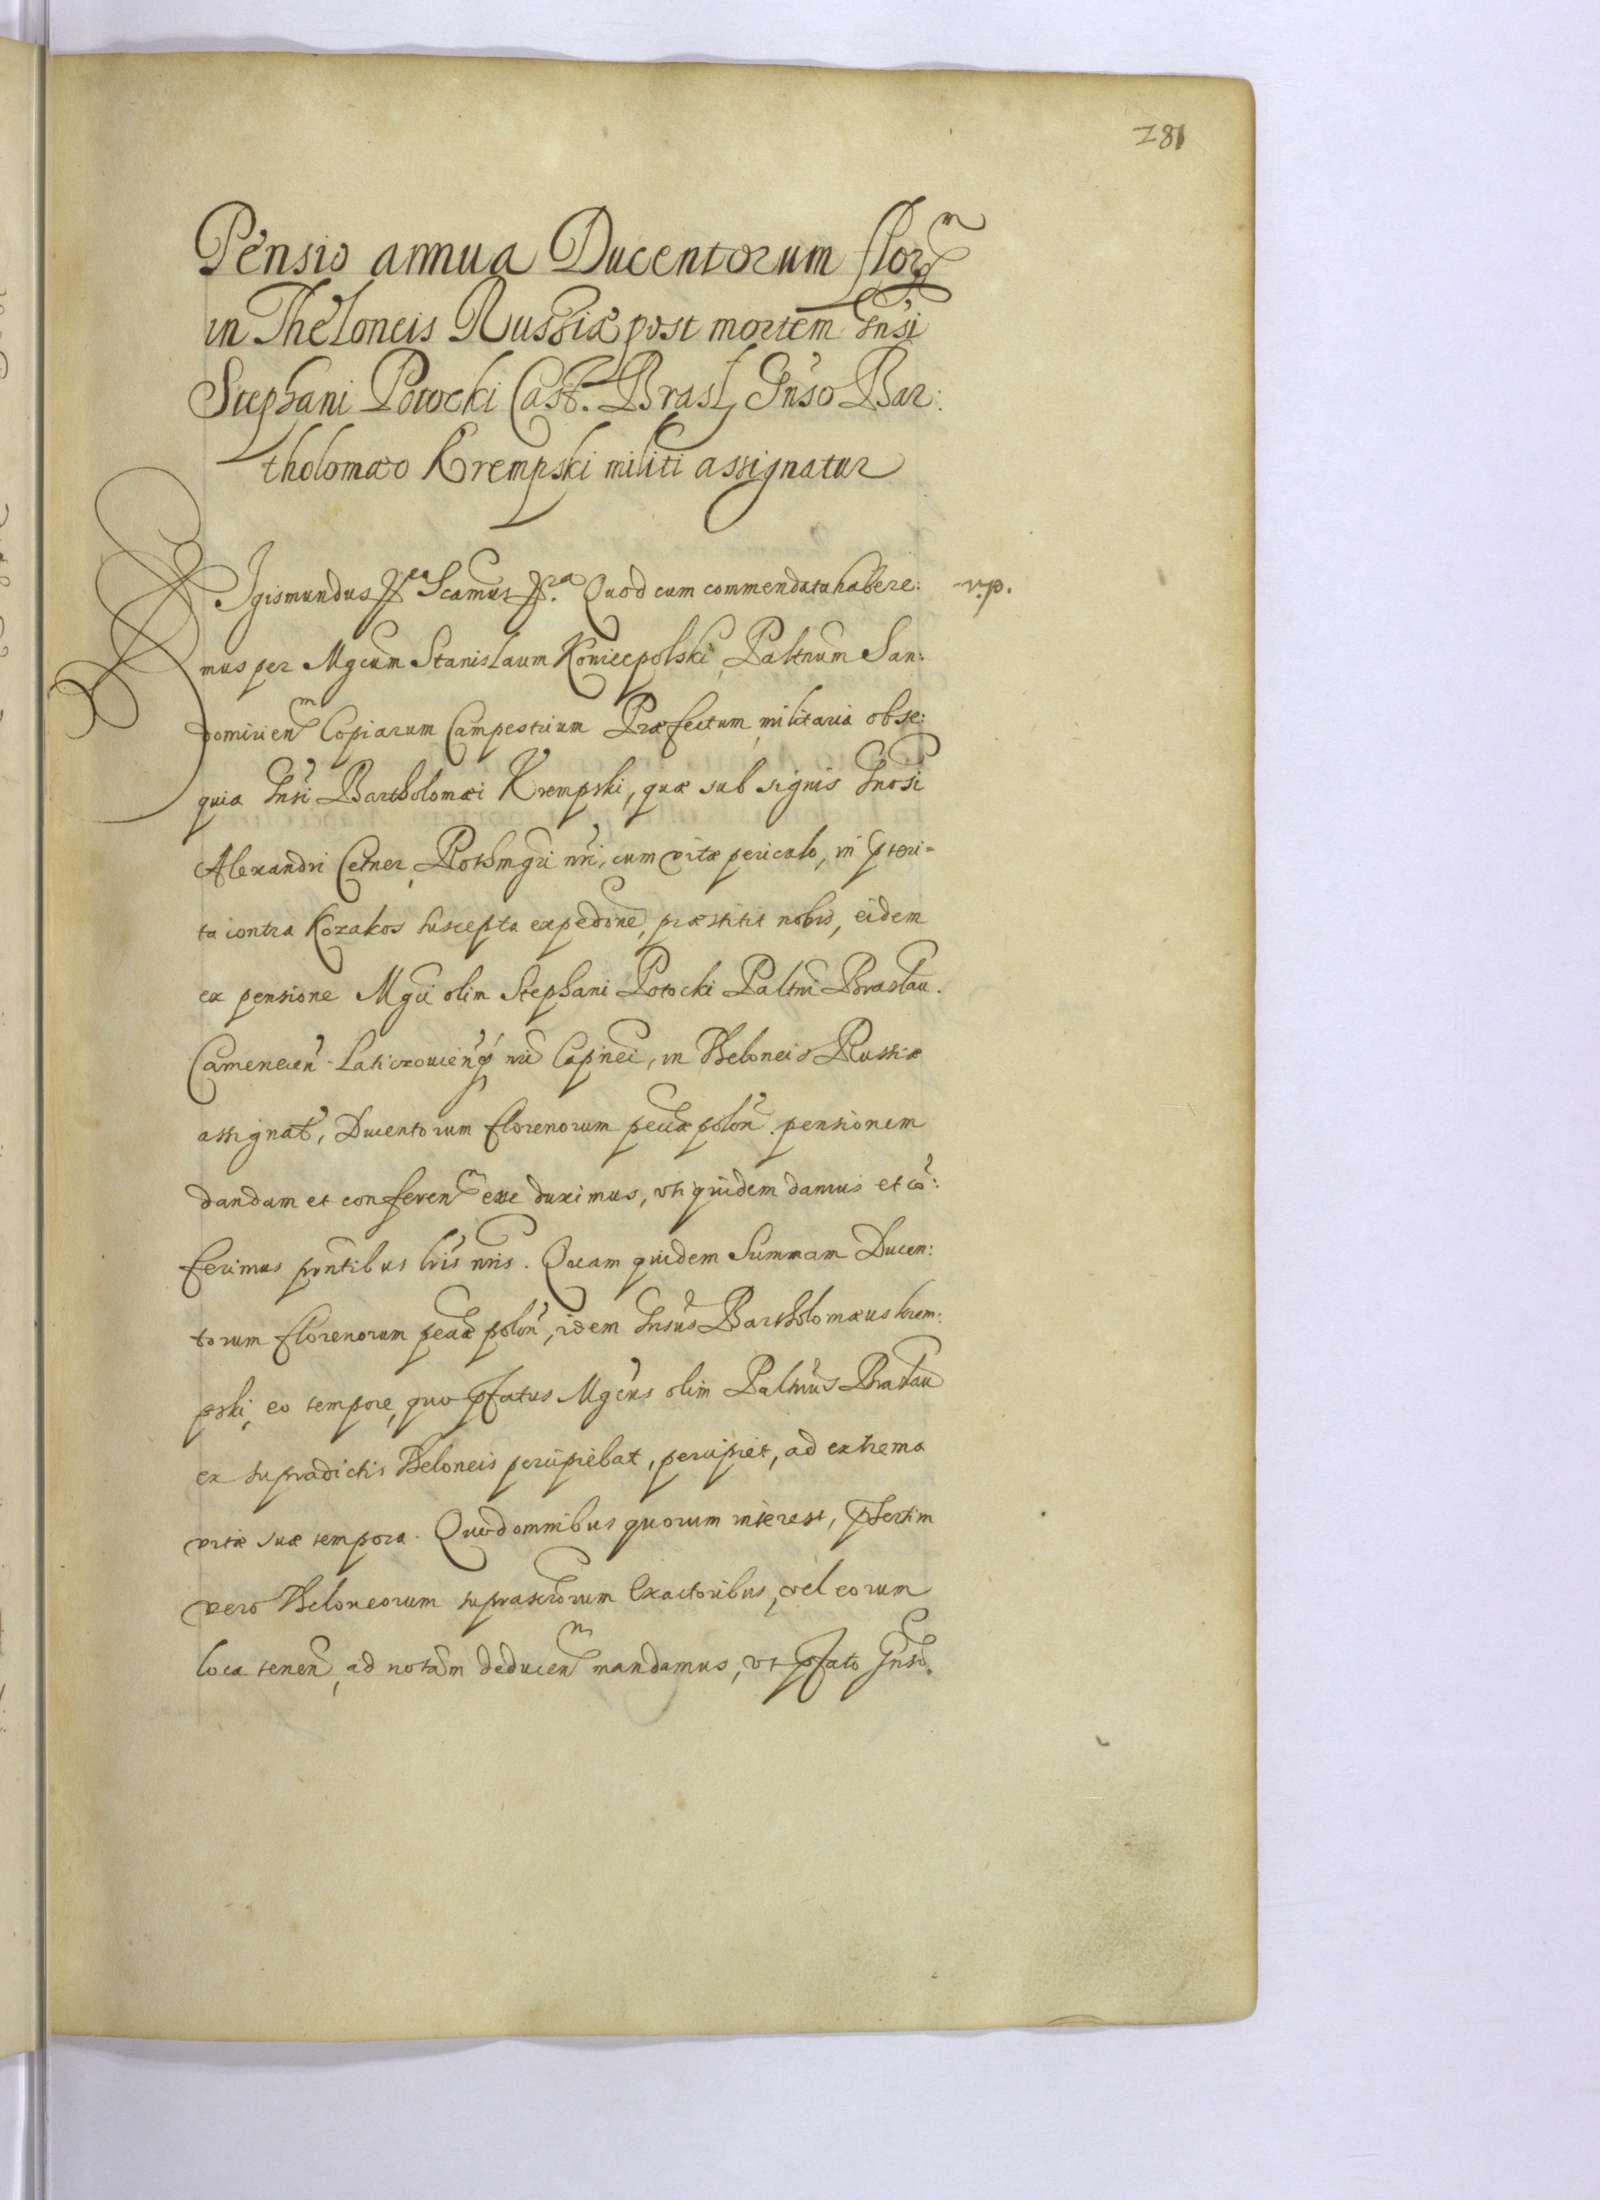 281
Pensio annua Ducentorum florm
in Theloneis Russiæ post mortem Gnsi
Stephani Potocki Cast. Brasł Gnso Bar:
tholomæo Krempski militi assignatur
Sigismundus Scamus Quod cum commendata habere: v.p.
mus per Mgcum Stanislaum Koniecpolski, Paltnum San:
domirienm Copiarum Campestrium Præfectum, militaria obse:
quia Gnsi Bartholomæi Krempski, quæ sub signis Gnosi
Alexandri Cetner, Rothmgri nri, cum vitæ periculo, in pteri=
ta contra Kozakos suscepta expedone, præstitit nobis, eidem
ex pensione Mgci olim Stephani Potocki Paltni Braslau.
Camenecen Laticzouienq nri Capnei, in Theloneis Russiæ
assignat, Ducentorum florenorum pecuæ polon. pensionem
dandam et conferenm esse duximus, uti quidem damus et co:
ferimus pntibus lris nris. Quam quidem Summam Ducen:
torum florenorum pecuæ polon, idem Gnsus Bartholomæus krem:
pski, eo tempore, quo pfatus Mgcus olim Paltnus Braslau
ex supradictis Theloneis percipiebat, percipiet, ad extrema
vitæ suæ tempora. Quod omnibus quorum interest, psertim
vero Theloneorum suprascrorum Exactoribus, vel eorum
loca tenen, ad notam deducenm mandamus, vt pfato Gnso.